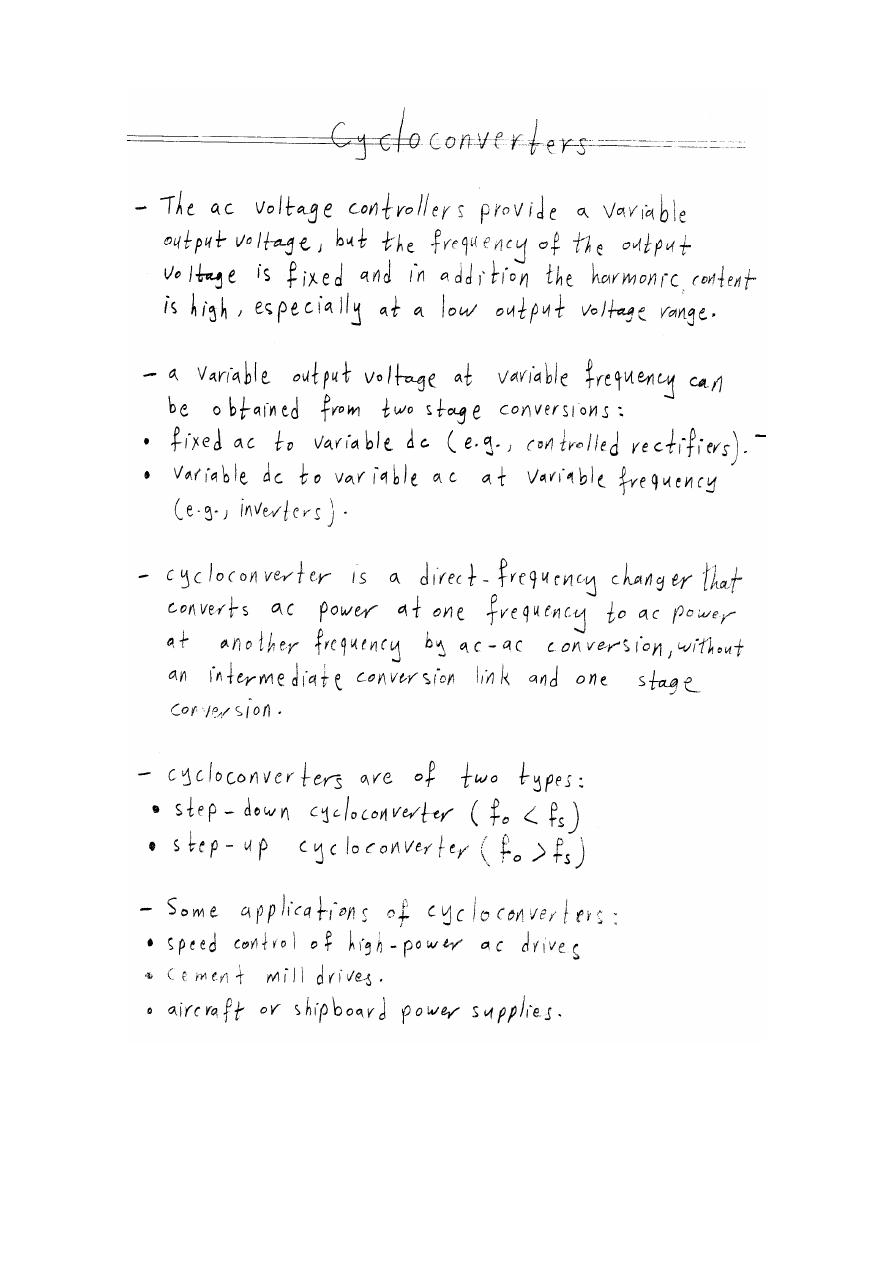 Cycloconverters
- The ac voltage controllers provide a variable
output voltage, but the frequency of the output
voltage is fixed and in addition the harmonic content
is high, especially at a low output voltage range.
- a variable output voltage at variable frequency can
be obtained from two stage conversions:
• fixed ac to variable dc (e.g., controlled rectifiers). -
• variable dc to variable ac at variable frequency
(e.g., inverters).
- cycloconverter is a direct-frequency changer that
converts ac power at one frequency to ac power
at another frequency by ac-ac conversion, without
an intermediate conversion link and one stage
conversion.
- cycloconverters are of two types:
• step-down cycloconverter (fo < fs)
• step-up cycloconverter (fo > fs)
- Some applications of cycloconverters:
• speed control of high-power ac drives
• cement mill drives.
• aircraft or shipboard power supplies.